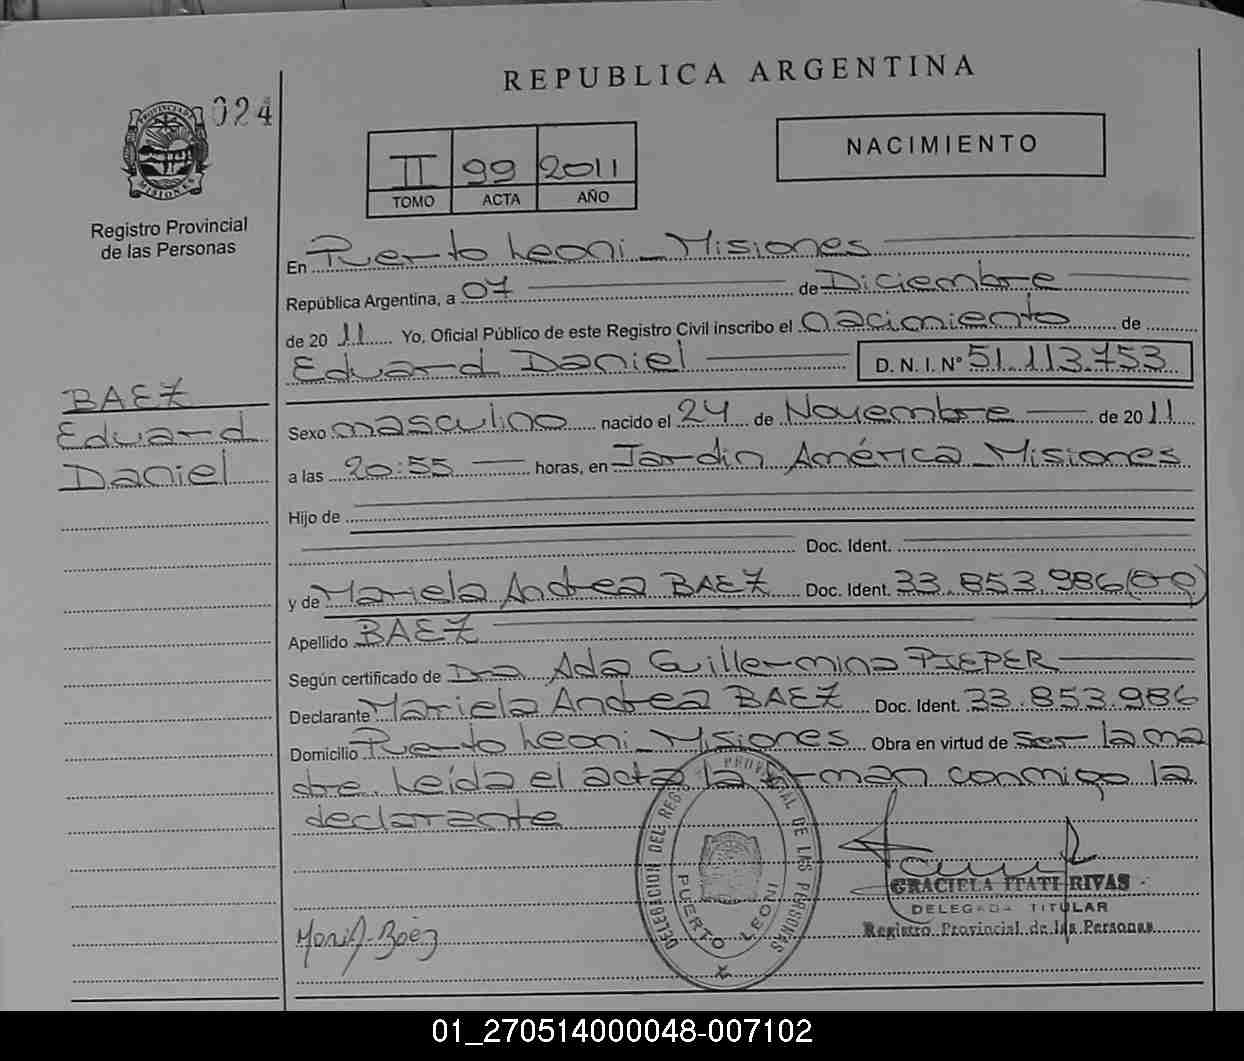 REPUBLICA ARGENTINA
024
NACIMIENTO
II 99 2011
TOMO ACTA AÑO
Registro Provincial
de las Personas
En Puerto Leoni - Misiones
República Argentina, a 07 de Diciembre
de 2011 Yo, Oficial Público de este Registro Civil inscribo el nacimiento de
Eduard Daniel D. N. I. Nº 51.113.753
BAEZ
Eduard
Daniel
Sexo masculino nacido el 24 de Noviembre de 2011
a las 20:55 horas, en Jardin América - Misiones
Hijo de
Doc. Ident.
y de Mariela Andrea BAEZ Doc. Ident. 33.853.986
Apellido BAEZ
Según certificado de Dra Ada Guillermina PIEPER
Declarante Mariela Andrea BAEZ Doc. Ident. 33.853.986
Domicilio Puerto Leoni - Misiones Obra en virtud de ser la ma
dre. Leída el acta la firman conmigo la
declarante
DELEGACION DEL REG. PROVINCIAL DE LAS PERSONAS
PUERTO LEONI
GRACIELA ITATI RIVAS
DELEGADA TITULAR
Registro Provincial de las Personas
MISIONES
01_270514000048-007102